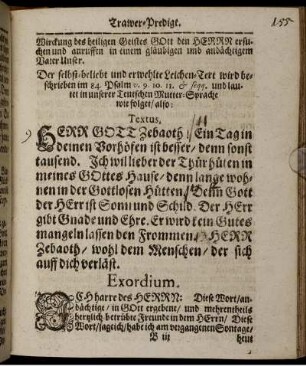 Trawer-Predigt.
155
Wirckung des heiligen Geistes GOtt den HERRN ersu-
chen und anruffen in einem gläubigen und andächtigem
Vater Unser.
Der selbst-beliebt und erwehlte Leichen-Text wird be-
schrieben im 84. Psalm v. 9. 10. 11. & seqq. und lau-
tet in unserer Teutschen Mutter-Sprache
wie folget / also:
Textus,
HERR GOTT Zebaoth / Ein Tag in
deinen Vorhöfen ist besser / denn sonst
tausend. Ich wil lieber der Thür hüten in
meines GOttes Hause / denn lange woh-
nen in der Gottlosen Hütten / Denn Gott
der HErr ist Sonn und Schild. Der HErr
gibt Gnade und Ehre. Er wird kein Gutes
mangeln lassen den Frommen / HERR
Zebaoth / wohl dem Menschen / der sich
auff dich verläst.
Exordium.
ICH harre des HERRN: Diese Wort / an-
dächtige / in Gott ergebene / und mehrentheils
hertzlich betrübte Freunde in dem HErrn / Diese
Wort / sag ich / hab ich am vergangenen Sontage /
B iij
heut